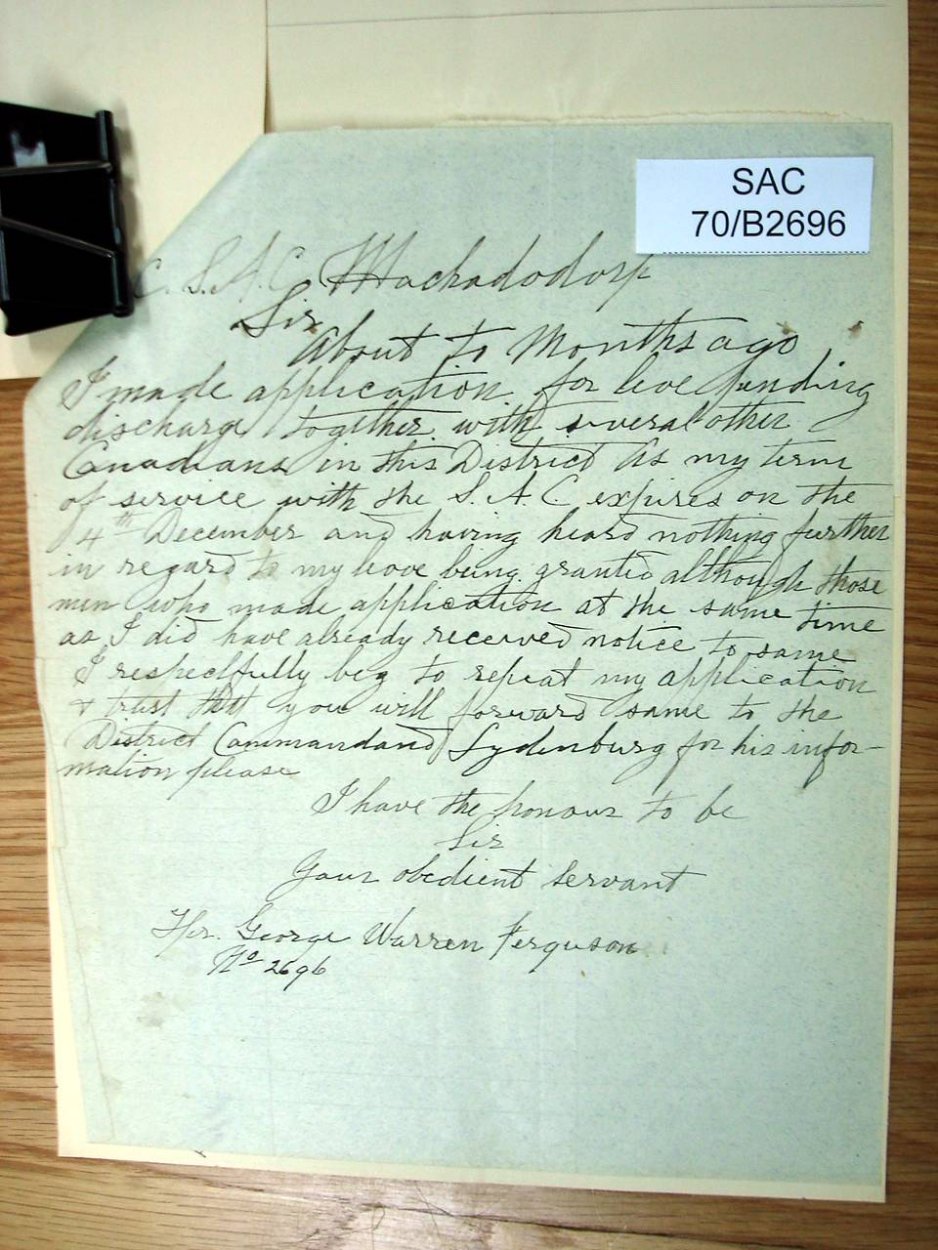 SAC
70/B2696
C. S.A.C. Machadodorp
Sir
About to Months ago
I made application for leve pending
discharge together with several other
Canadians in this District As my term
of service with the S.A.C expires on the
14th December and having heard nothing further
in regard to my leove being granted although those
men who made application at the same time
as I did have already received notice to same
I respectfully beg to repeat my application
& trust that you will forward same to the
District Commandand Lydenburg for his infor-
mation please
I have the honour to be
Sir
Your obedient servant
Tpr. George Warren Ferguson
No 2696